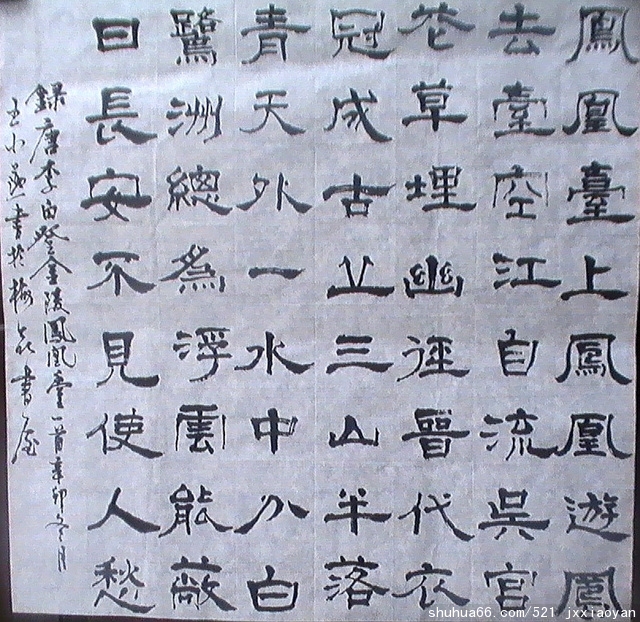 鳳凰臺上鳳凰遊鳳
去臺空江自流吳宮
花草埋幽徑晉代衣
冠成古丘三山半落
青天外一水中分白
鷺洲總為浮雲能蔽
日長安不見使人愁
錄唐李白登金陵鳳凰臺一首辛卯冬月
王小燕書於梅花書屋
shuhua66.com/521 jxxiaoyan